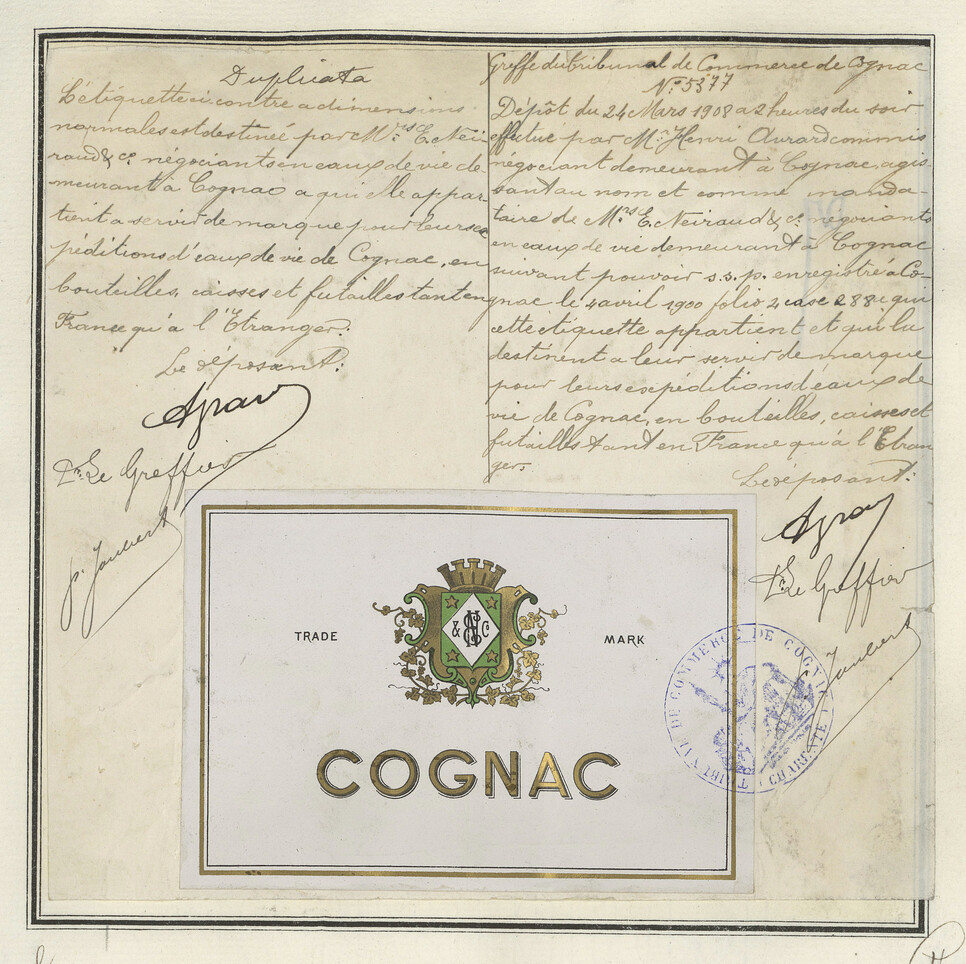 Duplicata
L'étiquette ci contre a dimensions
normales est destinée par Mrs E. Nei-
raud & Co. négociants en eaux de vie de-
meurant à Cognac a qui elle appar-
tient a servir de marque pour leurs ex
péditions d'eaux de vie de Cognac, en
bouteilles, caisses et futailles tant en
France qu'à l'Etranger.
Le déposant:
Pr. Le Greffier
p. Joubert
Greffe du tribunal de Commerce de Cognac
No. 5377
Dépôt du 24 Mars 1908 a 2 heures du soir
effectué par Mr. Henri Avrard commis
négociant demeurant à Cognac, agis-
sant au nom et comme manda-
taire de Mrs E. Neiraud & Co. négociants
en eaux de vie demeurant à Cognac
suivant pouvoir s.s.p. enregistré à Co-
gnac le 4 avril 1900 folio 2 case 288 a qui
cette étiquette appartient et qui la
destinent a leur servir de marque
pour leurs expéditions d'eaux de
vie de Cognac, en bouteilles, caisses et
futailles tant en France qu'à l'Etran
ger.
Le déposant:
Pr. Le Greffier
Joubert
TRADE MARK
N & Co
COGNAC
TRIBUNAL DE COMMERCE DE COGNAC
CHARENTE